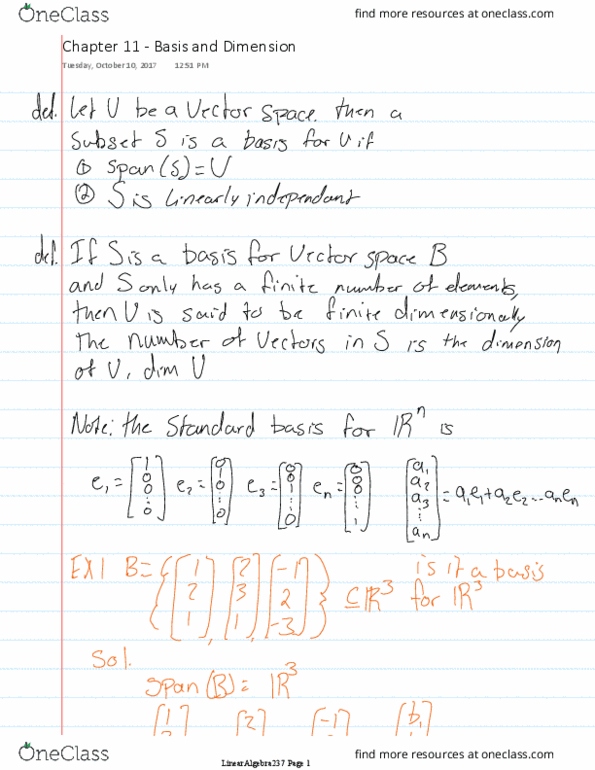 OneClass
find more resources at oneclass.com
Chapter 11 - Basis and Dimension
Tuesday, October 10, 2017 12:51 PM
def. Let U be a Vector space. then a
subset S is a basis for U if
① span(S)=U
② S is linearly independant
def. If S is a basis for Vector space B
and S only has a finite number of elements,
then U is said to be finite dimensionally
the number of Vectors in S is the dimension
of U, dim U
Note: the Standard basis for ℝⁿ is
e₁ = [1 0 0 ⋮ 0] e₂ = [0 1 0 ⋮ 0] e₃ = [0 0 1 ⋮ 0] eₙ = [0 0 0 ⋮ 1] [a₁ a₂ a₃ ⋮ aₙ] = a₁e₁+a₂e₂...aₙeₙ
EX1 B = {[1 2 1], [2 3 1], [-1 2 -3]} ⊆ ℝ³ is it a basis
for ℝ³
Sol.
span(B) = ℝ³
[1 [2] [-1] [b₁
OneClass
find more resources at oneclass.com
LinearAlgebra237 Page 1